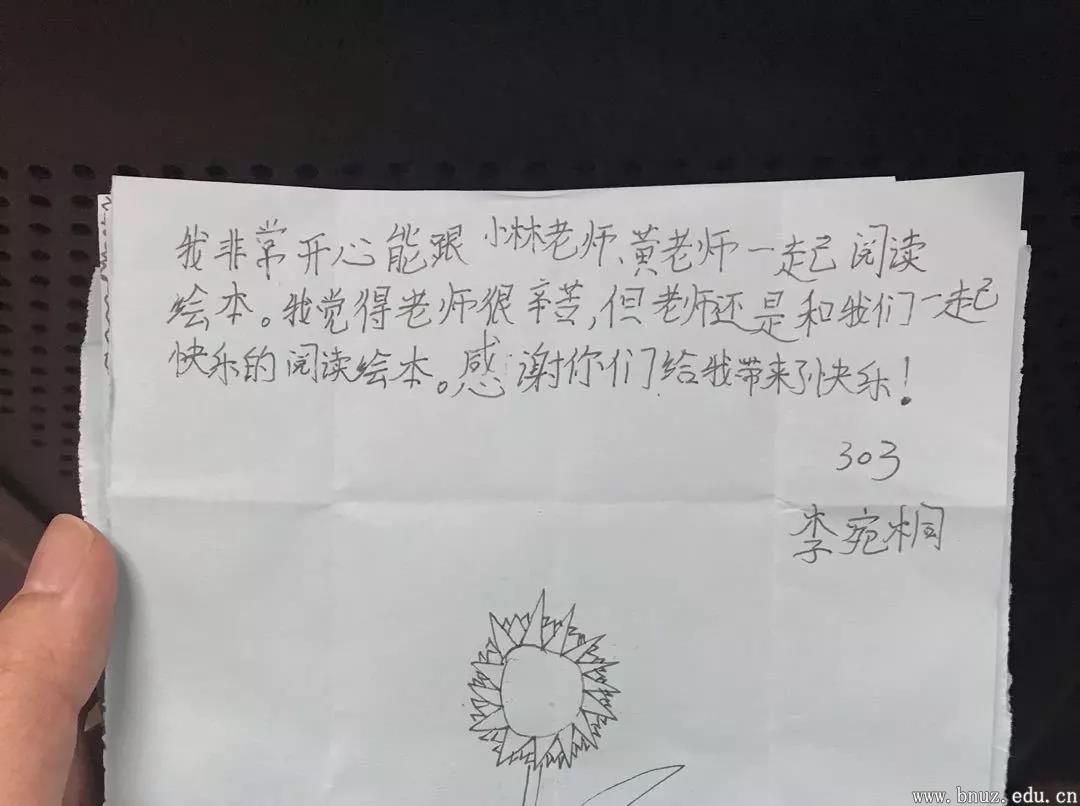 我非常开心能跟小林老师、黄老师一起阅读
绘本。我觉得老师很辛苦,但老师还是和我们一起
快乐的阅读绘本。感谢你们给我带来了快乐!
303
李宛桐
www.bnuz.edu.cn